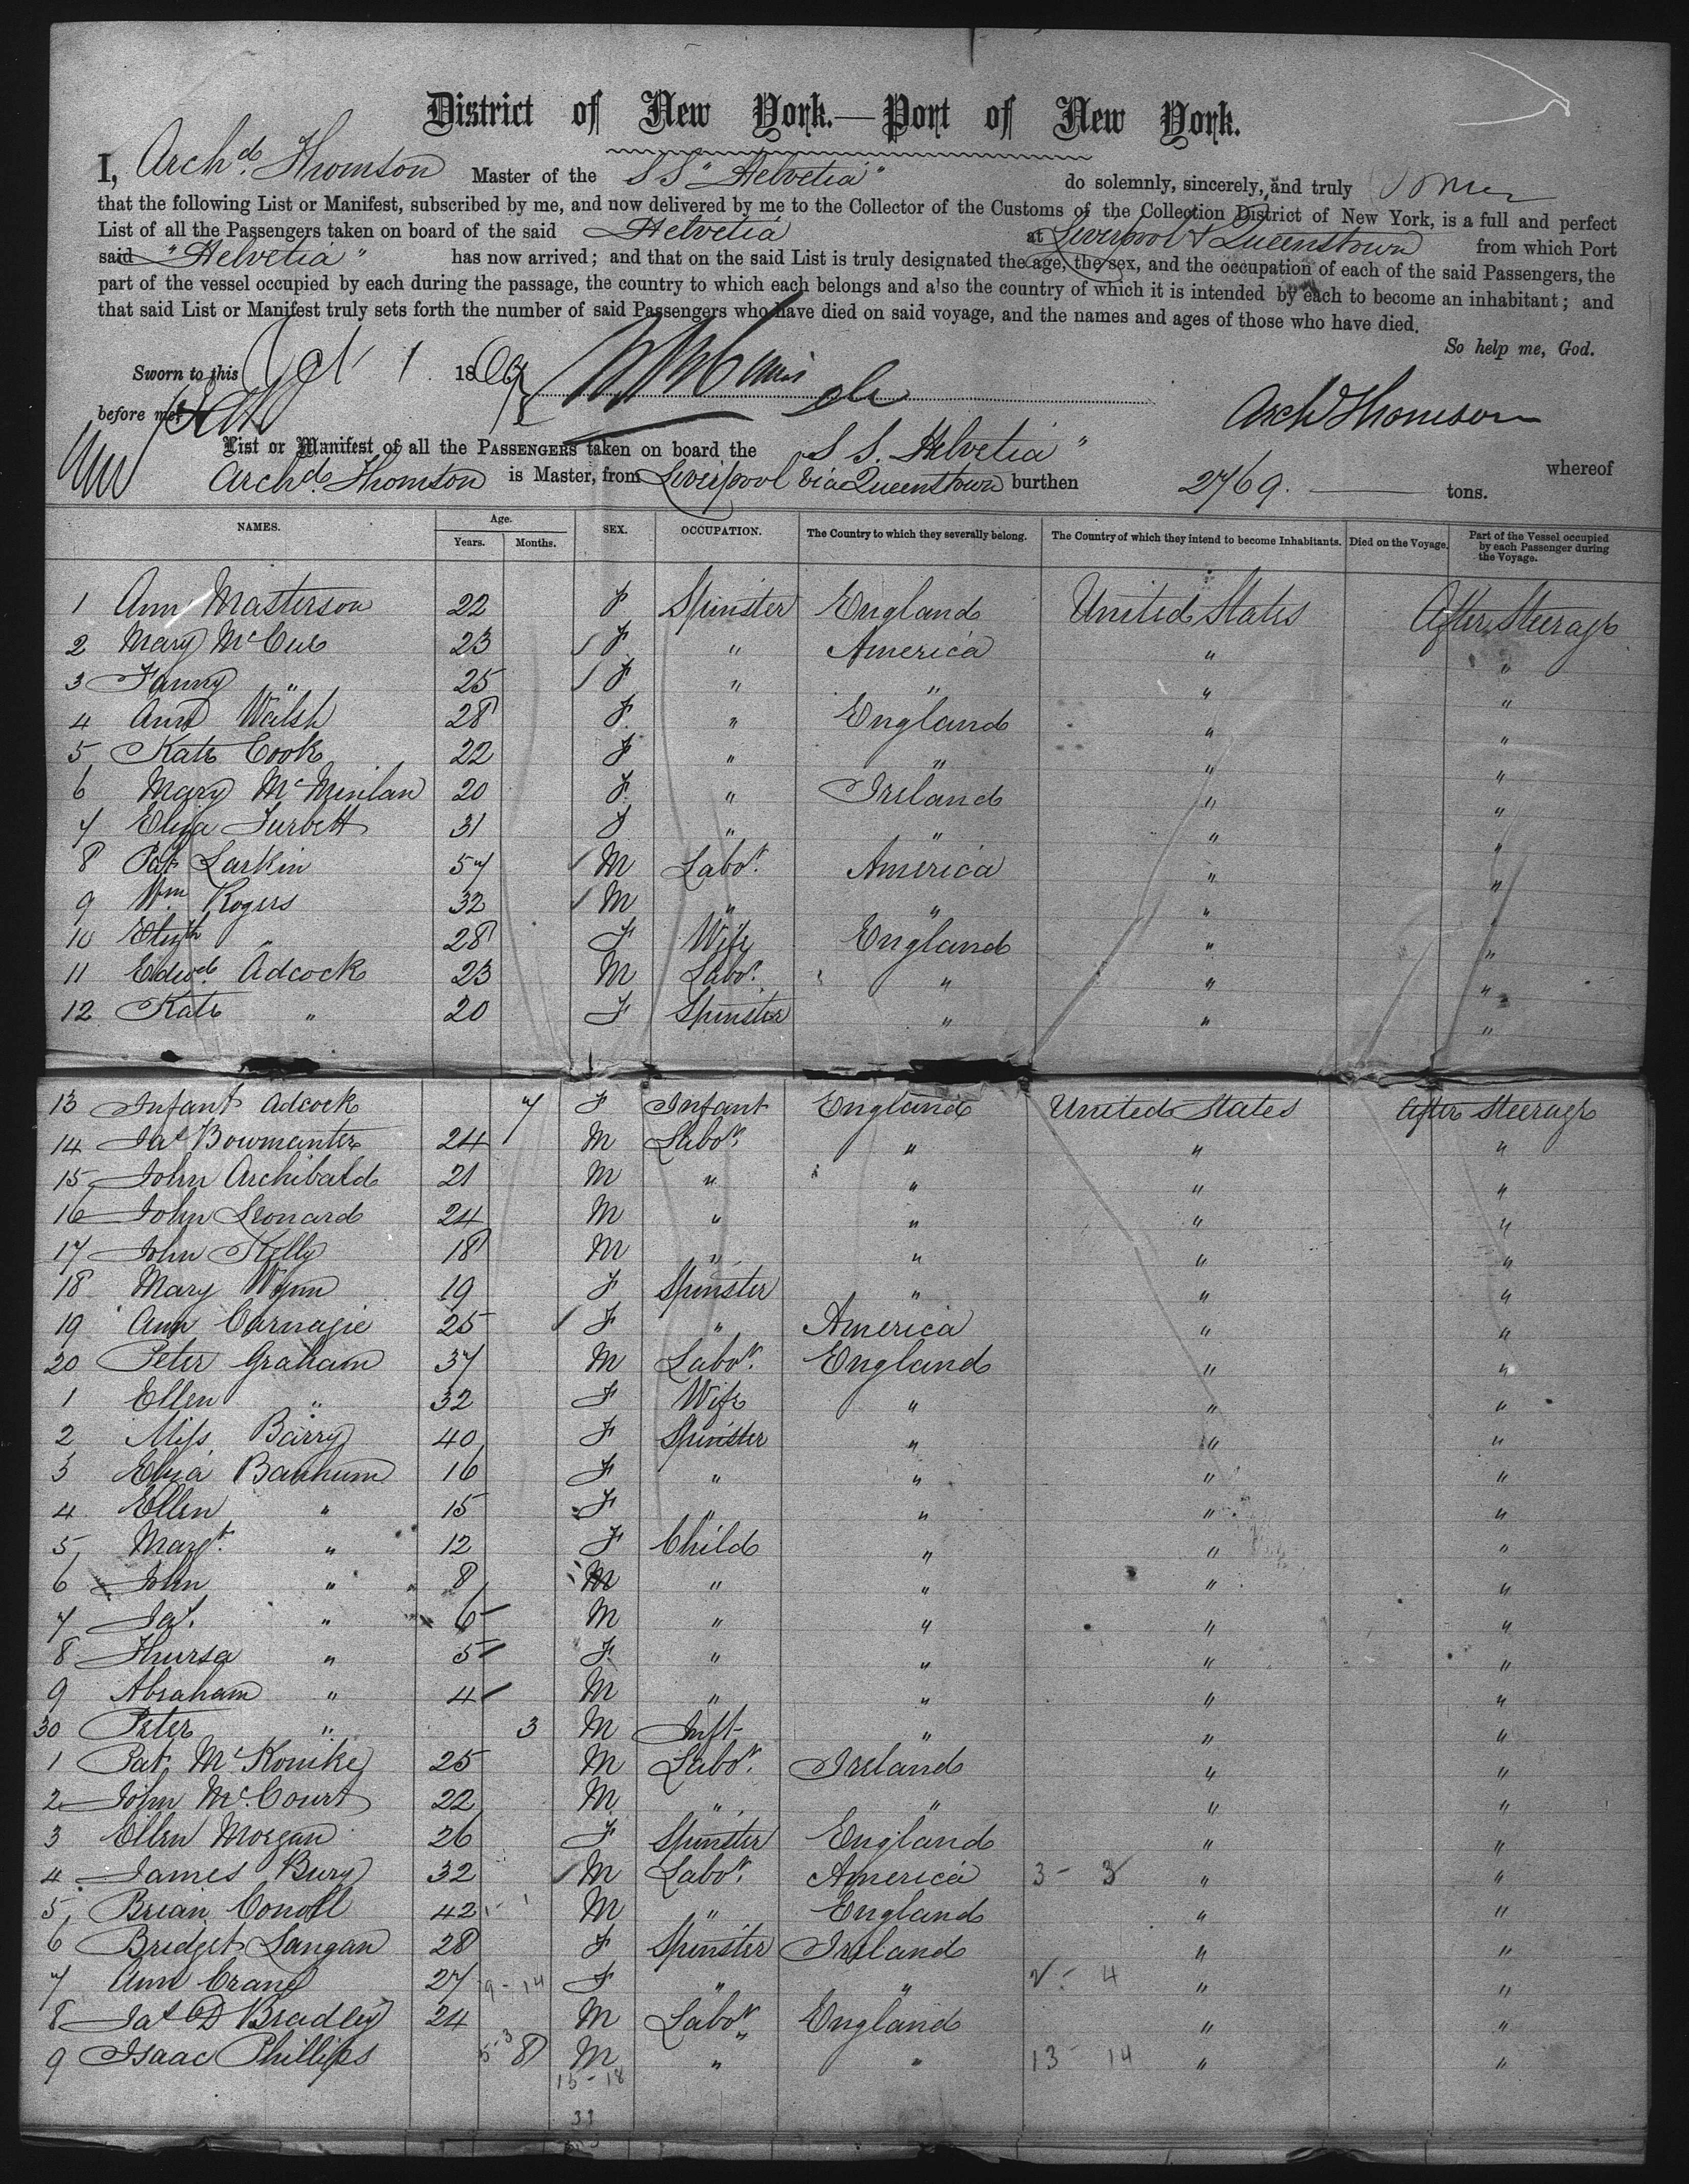 District of New York.—Port of New York.
I, Archd. Thomson Master of the SS "Helvetia" do solemnly, sincerely, and truly
that the following List or Manifest, subscribed by me, and now delivered by me to the Collector of the Customs of the Collection District of New York, is a full and perfect
List of all the Passengers taken on board of the said Helvetia at Liverpool & Queenstown from which Port
said "Helvetia" has now arrived; and that on the said List is truly designated the age, the sex, and the occupation of each of the said Passengers, the
part of the vessel occupied by each during the passage, the country to which each belongs and also the country of which it is intended by each to become an inhabitant; and
that said List or Manifest truly sets forth the number of said Passengers who have died on said voyage, and the names and ages of those who have died.
So help me, God.
Sworn to this Oct 1 1869
before me
Archd Thomson
List or Manifest of all the PASSENGERS taken on board the S S. Helvetia" whereof
Archd. Thomson is Master, from Liverpool via Queenstown burthen 2769. tons.
NAMES. Age. Years. Months. SEX. OCCUPATION. The Country to which they severally belong. The Country of which they intend to become Inhabitants. Died on the Voyage. Part of the Vessel occupied by each Passenger during the Voyage.
1 Ann Masterson 22 F Spinster England United States After Steerage
2 Mary McCue 23 F " America " "
3 Fanny " 25 F " " " "
4 Ann Walsh 28 F " England " "
5 Kate Cook 22 F " " " "
6 Mary McMinlan 20 F " Ireland " "
7 Eliza Turbett 31 F " " " "
8 Pat Larkin 57 M Labor. America " "
9 Wm Rogers 32 M " " " "
10 Elizth " 28 F Wife England " "
11 Edwd. Adcock 23 M Labor. " " "
12 Kate " 20 F Spinster " " "
13 Infant Adcock 7 F Infant England United States After Steerage
14 Jas Bowmanter 24 M Labor. " " "
15 John Archibald 21 M " " " "
16 John Leonard 24 M " " " "
17 John Kelly 18 M " " " "
18 Mary Wynn 19 F Spinster " " "
19 Ann Carnagie 25 F " America " "
20 Peter Graham 37 M Labor. England " "
1 Ellen " 32 F Wife " " "
2 Miss Barry 40 F Spinster " " "
3 Eliza Banhum 16 F " " " "
4 Ellen " 15 F " " " "
5 Margt. " 12 F Child " " "
6 John " 8 M " " " "
7 Jas. " 6 M " " " "
8 Thursa " 5 F " " " "
9 Abraham " 4 M " " " "
30 Peter " 3 M Inft " " "
1 Pat McKonike 25 M Labor. Ireland " "
2 John McCourt 22 M " " " "
3 Ellen Morgan 26 F Spinster England " "
4 James Bury 32 M Labor. America 3 - 3 " "
5 Brian Conoll 42 M " England " "
6 Bridget Langan 28 F Spinster Ireland " "
7 Ann Crane 27 9 - 14 F " " 2 - 4 " "
8 Jas D Bradley 24 M Labor England " "
9 Isaac Phillips 8 M " " 13 - 14 " "
15 - 18
33